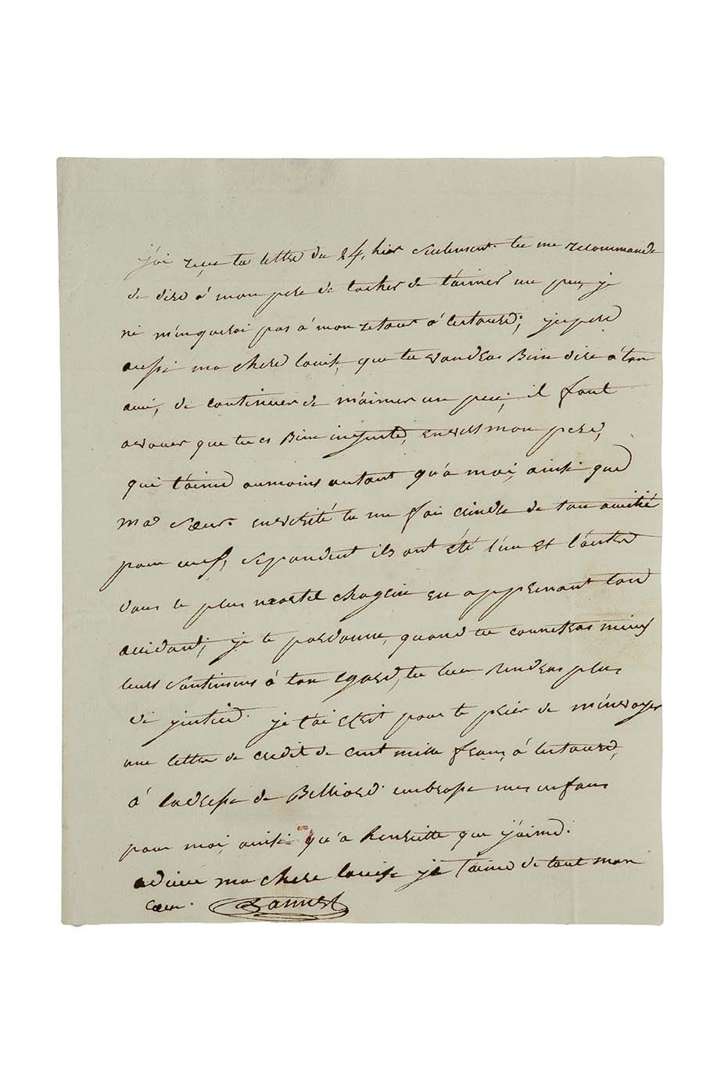 j'ai reçu ta lettre du 24, hier seulement. tu me recommande
de dire à mon pere de tacher de t'aimer un peu, je
ni m'inquerai pas à mon retour à lectoure; j'espere
aussi ma chere louise, que tu voudras Bien dire à ton
ami, de continuer de m'aimer un peu; il faut
avouer que tu es Bien injuste, envers mon pere,
qui t'aime aumoins autant qu'a moi, ainsi que
ma sœur. en verité tu me fais crindre de ton amitié
pour eux, cependent ils ont été l'un et l'autre
dans le plus mortel chagrin en apprenant ton
accidant; je te pardonne, quand tu connetras mieux
leurs sentimens à ton egard, tu leur renderas plus
de justice. je t'ai ecrit pour te prier de m'envoyer
une lettre de credit de cent mille francs à lectoure,
à ladresse de Billiord. embrasse mes enfans
pour moi, ainsi qu'a henriette que j'aime.
adieu ma chere louise je t'aime de tout mon
cœur. Lannes